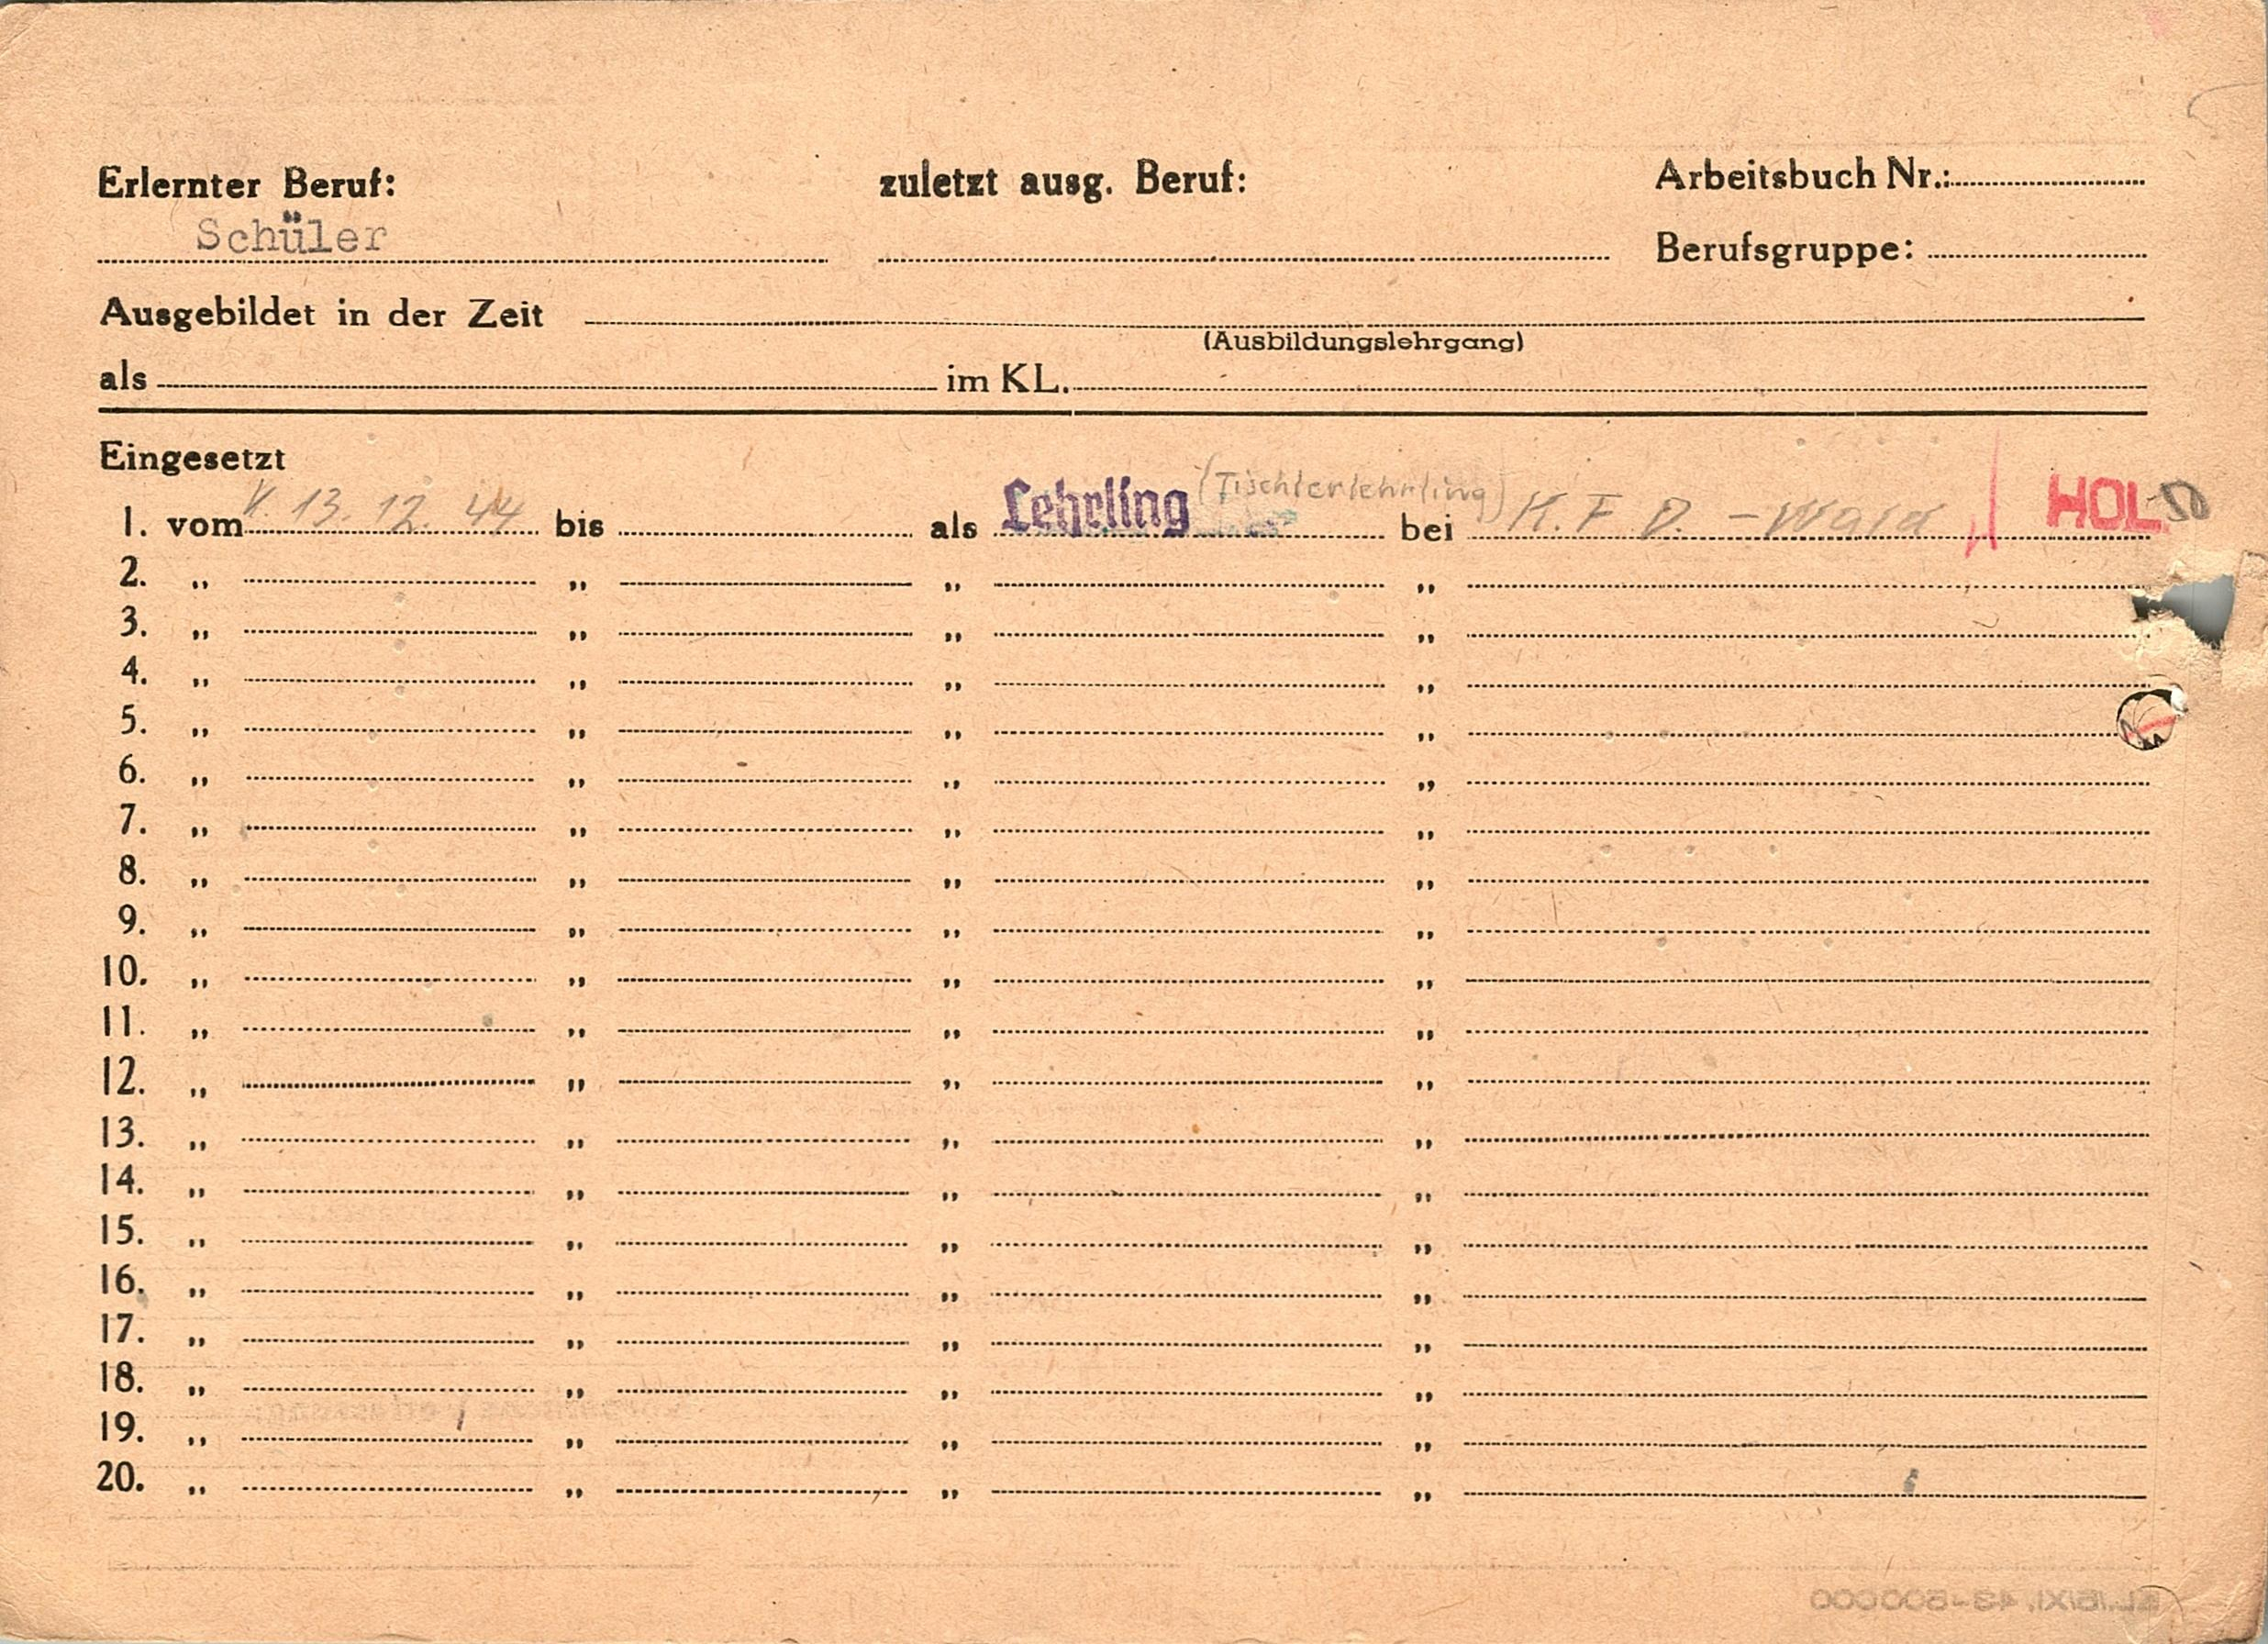 Erlernter Beruf: zuletzt ausg. Beruf: Arbeitsbuch Nr.:
Schüler
Berufsgruppe:
Ausgebildet in der Zeit
(Ausbildungslehrgang)
als im KL.
Eingesetzt
1. vom 13. 12. 44 bis als Lehrling (Tischlerlehrling) bei K. F. D. - Wald HOL
2. „ „ „ „
3. „ „ „ „
4. „ „ „ „
5. „ „ „ „
6. „ „ „ „
7. „ „ „ „
8. „ „ „ „
9. „ „ „ „
10. „ „ „ „
11. „ „ „ „
12. „ „ „ „
13. „ „ „ „
14. „ „ „ „
15. „ „ „ „
16. „ „ „ „
17. „ „ „ „
18. „ „ „ „
19. „ „ „ „
20. „ „ „ „